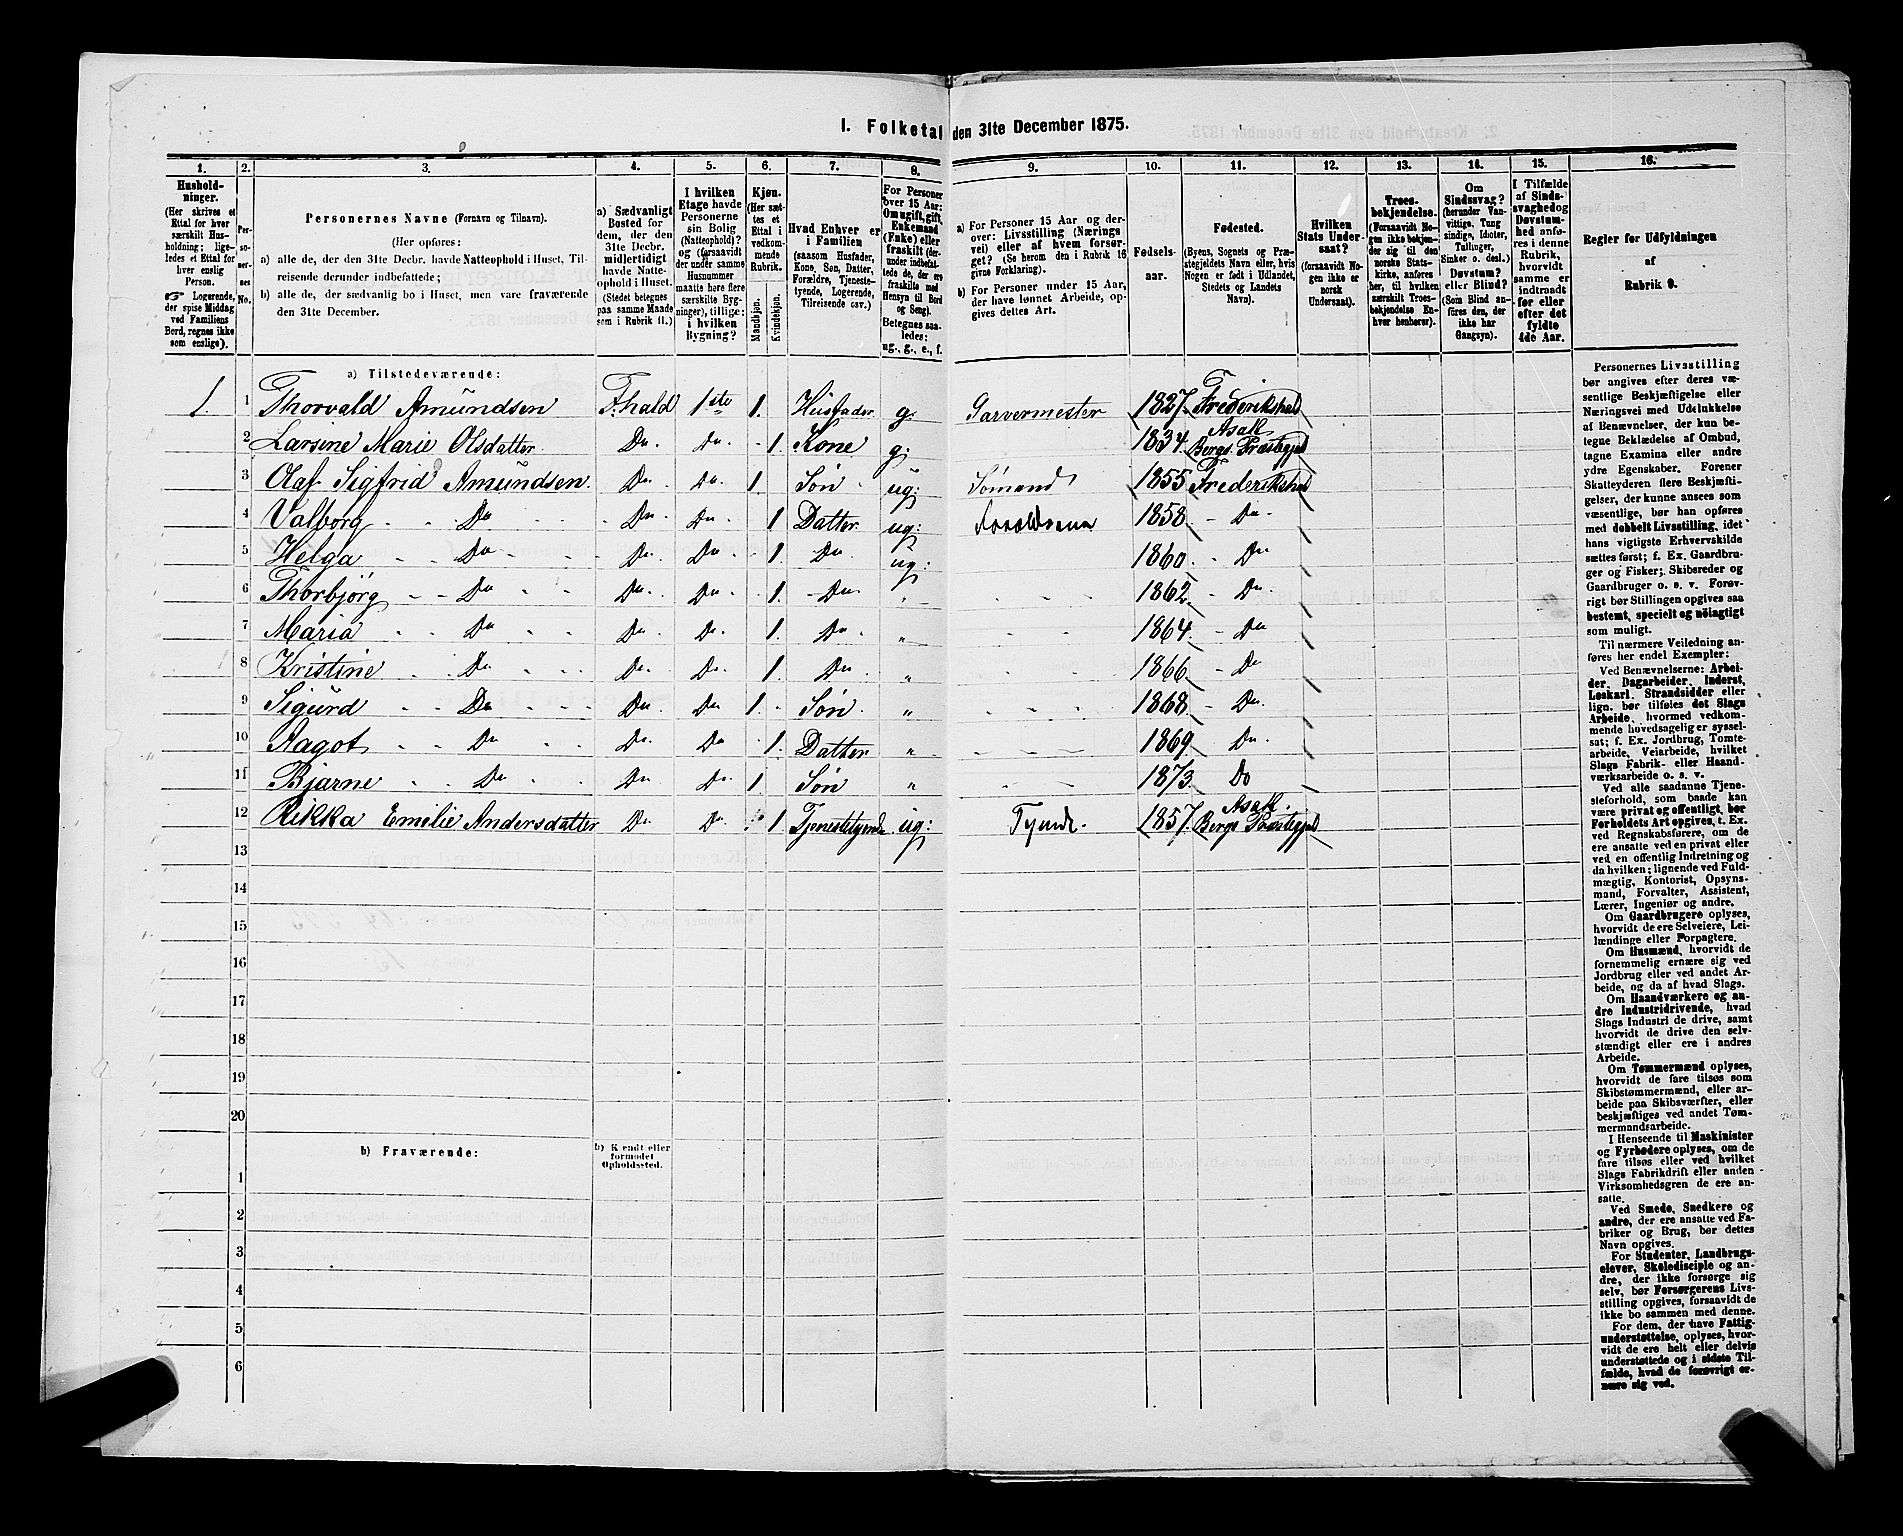 1. Folketal den 31te December 1875.
1. 2. 3. 4. 5. 6. 7. 8. 9. 10. 11. 12. 13. 14. 15. 16.
Hushold-
ninger.
(Her skrives et
Ettal for hver
særskilt Hus-
holdning; lige-
ledes et Ettal for
hver enslig
Person.
☞ Logerende,
der spise Middag
ved Familiens
Bord, regnes ikke
som enslige).
Per-
so-
ner-
nes
No.
Personernes Navne (Fornavn og Tilnavn).
(Her opføres:
a) alle de, der den 31te Decbr. havde Natteophold i Huset, Til-
reisende derunder indbefattede;
b) alle de, der sædvanlig bo i Huset, men vare fraværende
den 31te December.
a) Sædvanligt
Bosted for
dem, der den
31te Decbr.
midlertidigt
havde Natte-
ophold i Huset.
(Stedet betegnes
paa samme Maade
som i Rubrik 11.)
I hvilken
Etage havde
Personerne
sin Bolig
(Natteophold)?
og (forsaavidt
der under samme
Husnummer
maatte høre flere
særskilte Byg-
ninger), tillige:
i hvilken
Bygning?
Kjøn.
(Her sæt-
tes et
Ettal i
vedkom-
mende
Rubrik.
Mandkjøn.
Kvindekjøn.
Hvad Enhver er
i Familien
(saasom Husfader,
Kone, Søn, Datter,
Forældre, Tjeneste-
tyende, Logerende,
Tilreisende osv.)
For Personer
over 15 Aar:
Om ugift, gift,
Enkemand
(Enke) eller
fraskilt (der-
under indbefat-
tede de, der ere
fraskilte med
Hensyn til Bord
og Seng).
Betegnes saa-
ledes:
ug., g., e., f.
a) For Personer 15 Aar og der-
over: Livsstilling (Nærings
vei) eller af hvem forsør-
get? (Se herom den i Rubrik 16
givne Forklaring).
b) For Personer under 15 Aar,
der have lønnet Arbeide, op-
gives dettes Art.
Fødsels-
aar.
Fødested.
(Byens, Sognets og Præ-
stegjeldets Navn eller, hvis
Nogen er født i Udlandet,
Stedets og Landets
Navn).
Hvilken
Stats Under-
saat?
(forsaavidt No-
gen ikke er
norsk
Undersaat).
Troes-
bekjendelse.
(Forsaavidt No-
gen ikke bekjen-
der sig til den
norske Stats-
kirke, anføres
her, til hvilken
særskilt Troes-
bekjendelse En-
hver henhører).
Om
Sindssvag?
(herunder Van-
vittige, Tung
sindige, Idioter,
Tullinger,
Sinker o. desl.)
Døvstum?
eller Blind?
(Som Blind an-
føres den, der
ikke har
Gangsyn).
I Tilfælde
af Sinds-
svaghed og
Døvstum-
hed anfø-
res i denne
Rubrik,
hvorvidt
samme er
indtraadt
før eller
efter det
fyldte
4de Aar.
Regler for Udfyldningen
af
Rubrik 9.
a) Tilstedeværende:
1. 1 Thorvald Amundsen F.hald 1ste 1. Husfader g. Garvermester 1827. Frederikshald
2 Larsine Marie Olsdatter Do. Do. 1. Kone g. 1834. Asak Bergs Præstegjeld
3 Olaf Sigfrid Amundsen. Do. Do. 1 Søn ug: Sømand 1855 Frederikshald
4 Valborg Do Do. Do. 1 Datter ug: 1858. Do.
5 Helga Do Do. Do. 1. Do. ug: 1860. Do
6 Thorbjørg Do Do. Do. 1. Do. " 1862. Do.
7 Maria Do Do. Do. 1. Do. " 1864. Do
8 Kristine Do Do. Do. 1. Do. " 1866. Do
9 Sigurd Do Do. Do. 1. Søn. " 1868. Do.
10 Aagot Do Do. Do 1. Datter " 1869. Do.
11 Bjarne Do Do. Do. 1 Søn " 1873. Do
12 Rikka Emilie Andersdatter Do. Do. 1 Tjenestetyende ug: Tyende. 1857. Asak. Bergs Præstegjeld
13
14
15
16
17
18
19
20
b) Fraværende:
b) Kjendt eller
formodet
Opholdssted.
1
2
3
4
5
6
Personernes Livsstilling
bør angives efter deres væ-
sentlige Beskjæftigelse eller
Næringsvei med Udelukkelse
af Benævnelser, der kun be-
tegne Beklædelse af Ombud,
tagne Examina eller andre
ydre Egenskaber. Forener
Skatteyderen flere Beskjæfti-
gelser, der kunne ansees som
væsentlige, bør han opføres
med dobbelt Livsstilling, idet
hans vigtigste Erhvervskilde
sættes først; f. Ex. Gaardbru-
ger og Fisker; Skibsreder og
Gaardbruger o. s. v. Forøv-
rigt bør Stillingen opgives saa
bestemt, specielt og nöiagtigt
som muligt.
Til nærmere Veiledning an-
føres her endel Exempler:
Ved Benævnelserne: Arbei-
der, Dagarbeider, Inderst,
Løskarl, Strandsidder eller
lign. bør tilføies det Slags
Arbeide, hvormed vedkom-
mende hovedsagelig er syssel-
sat; f. Ex. Jordbrug, Tomte-
arbeide, Veiarbeide, hvilket
Slags Fabrik- eller Haand-
værksarbeide o. s. v.
Ved alle saadanne Tjene-
steforhold, som baade kan
være privat og offentligt, bør
Forholdets Art opgives, f. Ex.
ved Regnskabsførere, om de
ere ansatte ved en privat eller
ved en offentlig Indretning og
da hvilken; lignende ved Fuld-
mægtig, Kontorist, Opsyns-
mand, Forvalter, Assistent,
Lærer, Ingeniør og andre.
Om Gaardbrugere oplyses,
hvorvidt de ere Selveiere, Lei-
lændinge eller Forpagtere.
Om Husmænd, hvorvidt de
fornemmelig ernære sig ved
Jordbrug eller ved andet Ar-
beide, og da af hvad Slags.
Om Haandværkere og an-
dre Industridrivende, hvad
Slags Industri de drive, samt
hvorvidt de drive den selv-
stændigt eller ere i andres
Arbeide.
Om Tømmermænd oplyses,
hvorvidt de fare tilsøs som
Skibstømmermænd, eller ar-
beide paa Skibsværfter, eller
beskjæftiges ved andet Tøm-
mermandsarbeide.
I Henseende til Maskinister
og Fyrbødere oplyses, om de
fare tilsøs eller ved hvilket
Slags Fabrikdrift eller anden
Virksomhedsgren de ere an-
satte.
Ved Smede, Snedkere og
andre, der ere ansatte ved Fa-
briker og Brug, bør dettes
Navn opgives.
For Studenter, Landbrugs-
elever, Skoledisciple og an-
dre, der ikke forsørge sig
selv, bør Forsørgerens Livs-
stilling opgives, forsaavidt de
ikke bo sammen med denne.
For dem, der have Fattig-
understøttelse, oplyses, hvor-
vidt de ere helt eller delvis
understøttede og i sidste Til-
fælde, hvad de forøvrigt er-
nære sig ved.